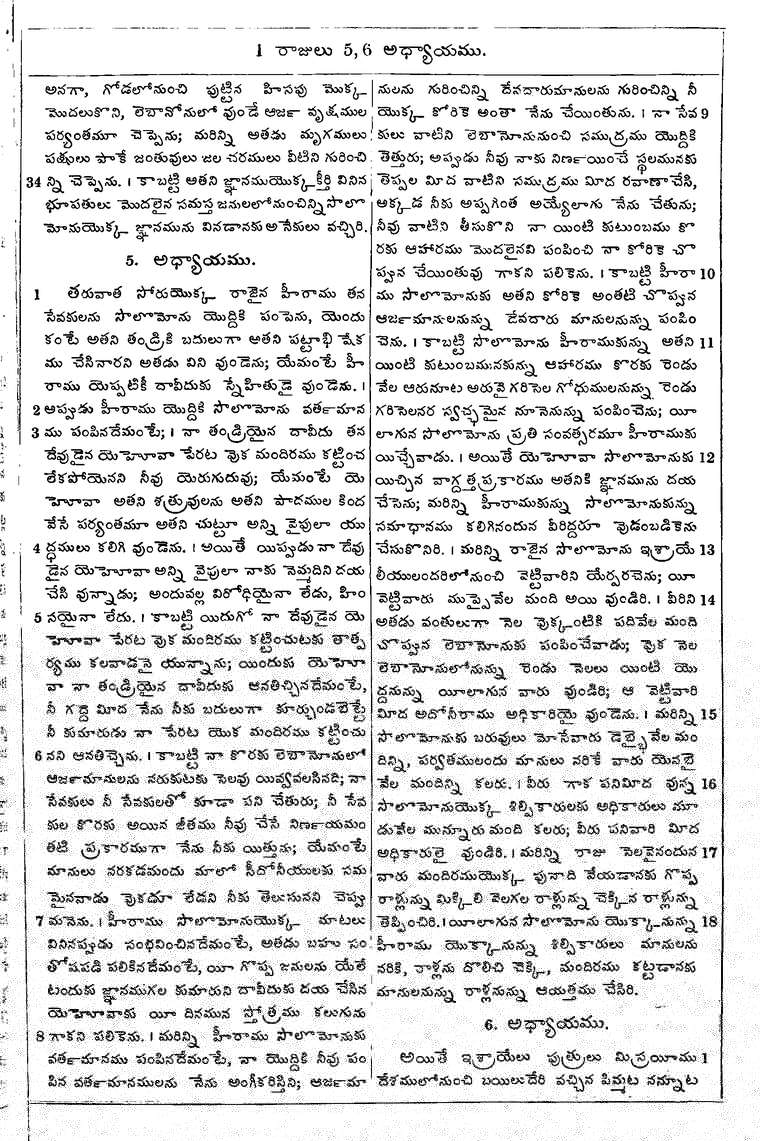 1 రాజులు 5, 6 అధ్యాయము.
అనగా, గోడలోనుంచి పుట్టిన హిసపు మొక్క
మొదలుకొని, లెబానోనులో వుండే ఆర్జా వృక్షముల
పర్యంతమూ చెప్పెను; మరిన్ని అతడు మృగములు
పక్షులు పాకే జంతువులు జల చరములు వీటిని గురించి
34 న్ని చెప్పెను. । కాబట్టి ఆతని జ్ఞానముయొక్క కీర్తి వినిన
భూపతులు మొదలైన సమస్త జనులలోనుంచిన్ని సొలొ
మోనుయొక్క జ్ఞానమును వినడానకు అనేకులు వచ్చిరి.
5. అధ్యాయము.
1 తరువాత సోరుయొక్క రాజైన హీరాము తన
సేవకులను సొలొమోను యొద్దికి పంపెను, యెందు
కంటే అతని తండ్రికి బదులుగా ఆతని పట్టాభి షేక
ము చేసినారని అతడు విని వుండెను; యేమంటే హీ
రాము యెప్పటికీ దావీదుకు స్నేహితుడై వుండెను. ।
2 అప్పుడు హీరాము యొద్దికి సొలొమోను వర్తమాన
3 ము పంపినదేమంటే; । నా తండ్రియైన దావీదు తన
దేవుడైన యెహోవా పేరట వుక మందిరము కట్టించ
లేకపోయెనని నీవు యెరుగుదువు; యేమంటే యె
హోవా అతని శత్రువులను అతని పాదముల కింద
వేసే పర్యంతమూ అతని చుట్టూ అన్ని వైపులా యు
4 ద్ధములు కలిగి వుండెను. । అయితే యిప్పుడు నా దేవు
డైన యెహోవా అన్ని వైపులా నాకు నెమ్మదిని దయ
చేసి వున్నాడు; అందువల్ల విరోధియైనా లేదు, హిం
5 సయైనా లేదు. । కాబట్టి యిదుగో నా దేవుడైన యె
హోవా పేరట వుక మందిరము కట్టించుటకు తాత్ప
ర్యము కలవాడనై యున్నాను; యిందుకు యెహో
వా నా తండ్రియైన దావీదుకు ఆనతిచ్చినదేమంటే,
నీ గద్ది మీద నేను నీకు బదులుగా కూర్చుండబెట్టే
నీ కుమారుడు నా పేరట యొక మందిరము కట్టించు
6 నని ఆనతిచ్చెను. । కాబట్టి నా కొరకు లెబానోనులో
ఆర్జామానులను నరుకుటకు సెలవు యివ్వవలసినది; నా
సేవకులు నీ సేవకులతో కూడా పని చేతురు; నీ సేవ
కుల కొరకు అయిన జీతము నీవు చేసే నిర్ణయమం
తటి ప్రకారముగా నేను నీకు యిత్తును; యేమంటే
మానులు నరకడమందు మాలో సీదోనీయులకు సమ
మైనవాడు వుకడూ లేడని నీకు తెలుసునని చెప్పు
7 మనెను. । హీరాము సొలొమోనుయొక్క మాటలు
వినినప్పుడు సంభవించినదేమంటే, అతడు బహు సం
తోషపడి పలికినదేమంటే, యీ గొప్ప జనులను యేలే
టందుకు జ్ఞానముగల కుమారుని దావీదుకు దయ చేసిన
యెహోవాకు యీ దినమున స్తోత్రము కలుగును
8 గాకని పలికెను. । మరిన్ని హీరాము సొలొమోనుకు
వర్తమానము పంపినదేమంటే, నా యొద్దికి నీవు పం
పిన వర్తమానములను నేను అంగీకరిస్తిని; ఆర్జామా
నులను గురించిన్ని దేవదారుమానులను గురించిన్ని నీ
యొక్క కోరికె అంతా నేను చేయింతును. । నా సేవ 9
కులు వాటిని లెబానోనునుంచి సముద్రము యొద్దికి
తెత్తురు; అప్పుడు నీవు నాకు నిర్ణయించే స్థలమునకు
తెప్పల మీద వాటిని సముద్రము మీద రవాణాచేసి,
అక్కడ నీకు అప్పగింత అయ్యేలాగు నేను చేతును;
నీవు వాటిని తీసుకొని నా యింటి కుటుంబము కొ
రకు ఆహారము మొదలైనవి పంపించి నా కోరికె చొ
ప్పున చేయింతువు గాకని పలికెను. । కాబట్టి హీరా 10
ము సొలొమోనుకు అతని కోరికె అంతటి చొప్పున
ఆర్జామానులనున్ను దేవదారు మానులనున్ను పంపిం
చెను. । కాబట్టి సొలొమోను హీరాముకున్ను అతని 11
యింటి కుటుంబమునకున్ను ఆహారము కొరకు రెండు
వేల ఆరునూట అరువై గరిసెల గోధుములనున్ను రెండు
గరిసెలనర స్వచ్ఛమైన నూనెనున్ను పంపించెను; యీ
లాగున సొలొమోను ప్రతి సంవత్సరమూ హీరాముకు
యిచ్చేవాడు. । అయితే యెహోవా సొలొమోనుకు 12
యిచ్చిన వాగ్దత్త ప్రకారము అతనికి జ్ఞానమును దయ
చేసెను; మరిన్ని హీరాముకున్ను సొలొమోనుకున్ను
సమాధానము కలిగినందున వీరిద్దరూ వుడంబడికెను
చేసుకొనిరి. । మరిన్ని రాజైన సొలొమోను ఇశ్రాయే 13
లీయులందరిలోనుంచి వెట్టివారిని యేర్పరచెను; యీ
వెట్టివారు ముప్పైవేల మంది అయి వుండిరి. । వీరిని 14
అతడు వంతులుగా నెల వుక్కంటికి పదివేల మంది
చొప్పున లెబానోనుకు పంపించేవాడు; వుక నెల
లెబానోనులోనున్ను రెండు నెలలు యింటి యొ
ద్దనున్ను యీలాగున వారు వుండిరి; ఆ వెట్టివారి
మీద అదోనీరాము అధికారియై వుండెను. । మరిన్ని 15
సొలొమోనుకు బరువులు మోసేవారు డెబ్భైవేల మం
దిన్ని, పర్వతములందు మానులు నరికే వారు యెనభై
వేల మందిన్ని కలరు. । వీరు గాక పనిమీద వున్న 16
సొలొమోనుయొక్క శిల్పికారులకు అధికారులు మూ
డువేల మున్నూరు మంది కలరు; వీరు పనివారి మీద
అధికారులై వుండిరి. । మరిన్ని రాజు సెలవైనందున 17
వారు మందిరముయొక్క పునాది వేయడానకు గొప్ప
రాళ్లున్ను మిక్కిలి వెలగల రాళ్లున్ను చెక్కిన రాళ్లున్ను
తెప్పించిరి. । యీలాగున సొలొమోను యొక్కానున్ను 18
హీరాము యొక్కానున్ను శిల్పికారులు మానులను
నరికి, రాళ్లను దొలిచి చెక్కి, మందిరము కట్టడానకు
మానులనున్ను రాళ్లనున్ను ఆయత్తము చేసిరి.
6. అధ్యాయము.
అయితే ఇశ్రాయేలు పుత్రులు మిస్రయీము 1
దేశములోనుంచి బయిలుదేరి వచ్చిన పిమ్మట నన్నూట